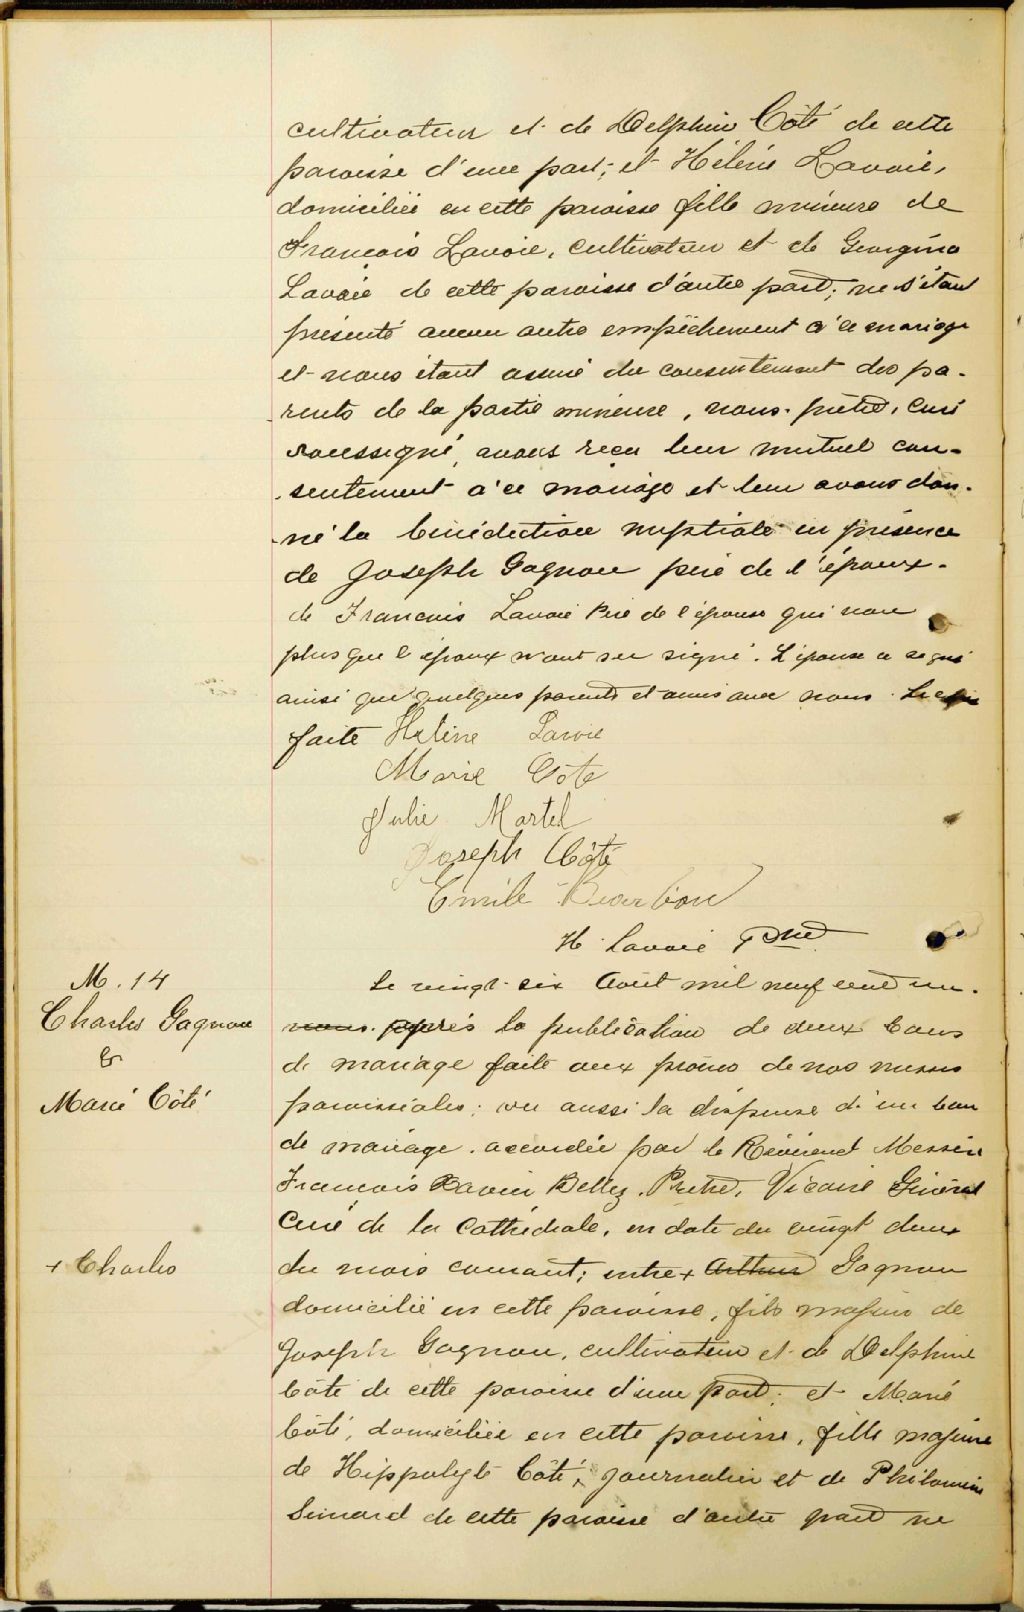 cultivateur et de Delphine Côté de cette
paroisse d'une part; et Hélène Lavoie,
domiciliée en cette paroisse fille mineure de
François Lavoie, cultivateur et de Georgina
Lavoie de cette paroisse d'autre part; ne s'étant
présenté aucun autre empêchement à ce mariage
et nous étant assuré du consentement des pa-
rents de la partie mineure, nous, prêtre, curé
soussigné, avons reçu leur mutuel con-
sentement à ce mariage et leur avons don-
né la bénédiction nuptiale en présence
de Joseph Gagnon père de l'époux.
de François Lavoie Père de l'épouse qui non
plus que l'époux n'ont su signé. L'épouse a signé
ainsi que quelques parents et amis avec nous. Lecture
faite Helène Lavoie
Marie Côté
Julie Martel
Joseph Côté
Emile Bourbon
H. Lavoie Ptre
M. 14
Charles Gagnon
&
Marie Côté
Le vingt-six Août mil neuf cent un.
nous après la publication de deux bans
de mariage faite aux prônes de nos messes
paroissiales; vu aussi la dispense d'un ban
de mariage accordée par le Révérend Messire
François Xavier Belley, Prêtre, Vicaire Général
Curé de la Cathédrale, en date du vingt deux
+ Charles
du mois courant; entre + Arthur Gagnon
domicilié en cette paroisse, fils majeur de
Joseph Gagnon, cultivateur et de Delphine
Côté de cette paroisse d'une part; et Marie
Côté, domiciliée en cette paroisse, fille majeure
de Hippolyte Côté, journalier et de Philomène
Simard de cette paroisse d'autre part ne